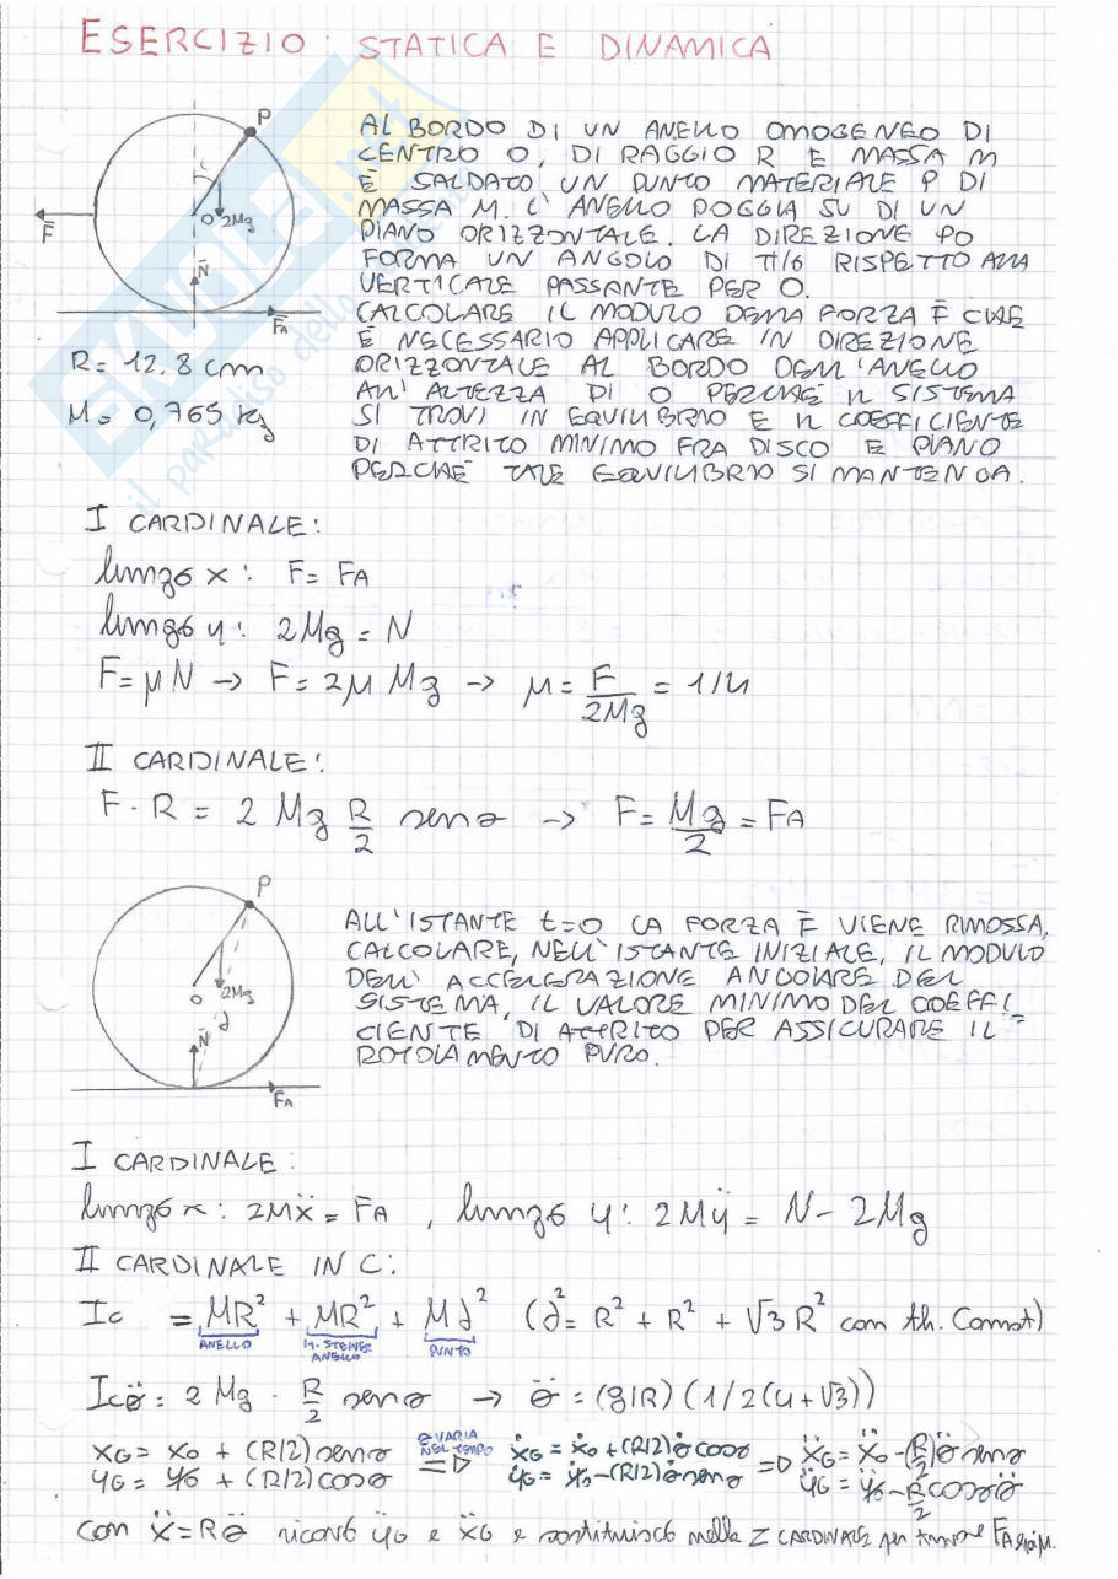 ESERCIZIO: STATICA E DINAMICA
P
O 2Mg
F
N
FA
R = 12.8 cm
M = 0,765 kg
AL BORDO DI UN ANELLO OMOGENEO DI
CENTRO O, DI RAGGIO R E MASSA M
È SALDATO UN PUNTO MATERIALE P DI
MASSA M. L'ANELLO POGGIA SU DI UN
PIANO ORIZZONTALE. LA DIREZIONE PO
FORMA UN ANGOLO DI π/6 RISPETTO ALLA
VERTICALE PASSANTE PER O.
CALCOLARE IL MODULO DELLA FORZA F CHE
È NECESSARIO APPLICARE IN DIREZIONE
ORIZZONTALE AL BORDO DELL'ANELLO
ALL'ALTEZZA DI O PERCHÉ IL SISTEMA
SI TROVI IN EQUILIBRIO E IL COEFFICIENTE
DI ATTRITO MINIMO FRA DISCO E PIANO
PERCHÉ TALE EQUILIBRIO SI MANTENGA.
I CARDINALE:
lungo x: F = FA
lungo y: 2Mg = N
F = μN → F = 2μMg → μ = F/2Mg = 1/4
II CARDINALE:
F · R = 2Mg R/2 senθ → F = Mg/2 = FA
P
O 2Mg
d
N
FA
ALL'ISTANTE t=0 LA FORZA F VIENE RIMOSSA.
CALCOLARE, NELL'ISTANTE INIZIALE, IL MODULO
DELL'ACCELERAZIONE ANGOLARE DEL
SISTEMA, IL VALORE MINIMO DEL COEFFI-
CIENTE DI ATTRITO PER ASSICURARE IL
ROTOLAMENTO PURO.
I CARDINALE:
lungo x: 2Mẍ = FA , lungo y: 2Mÿ = N - 2Mg
II CARDINALE IN C:
Ic = MR² + MR² + Md² (d² = R² + R² + √3R² con th. Carnot)
ANELLO H. STEINER ANELLO PUNTO
Icθ̈ = 2Mg · R/2 senθ → θ̈ = (g/R)(1/2(4+√3))
xG = xO + (R/2)senθ θ VARIA NEL TEMPO => ẋG = ẋO + (R/2)θ̇cosθ => ẍG = ẍO - (R/2)θ̈senθ
yG = yO + (R/2)cosθ ẏG = ẏO - (R/2)θ̇senθ ÿG = ÿO - R/2 cosθθ̈
con ẍ = Rθ̈ ricavo ÿG e ẍG e sostituisco nella I CARDINALE per trovare FA e μ.
SKUOLA.net
il paradiso dello